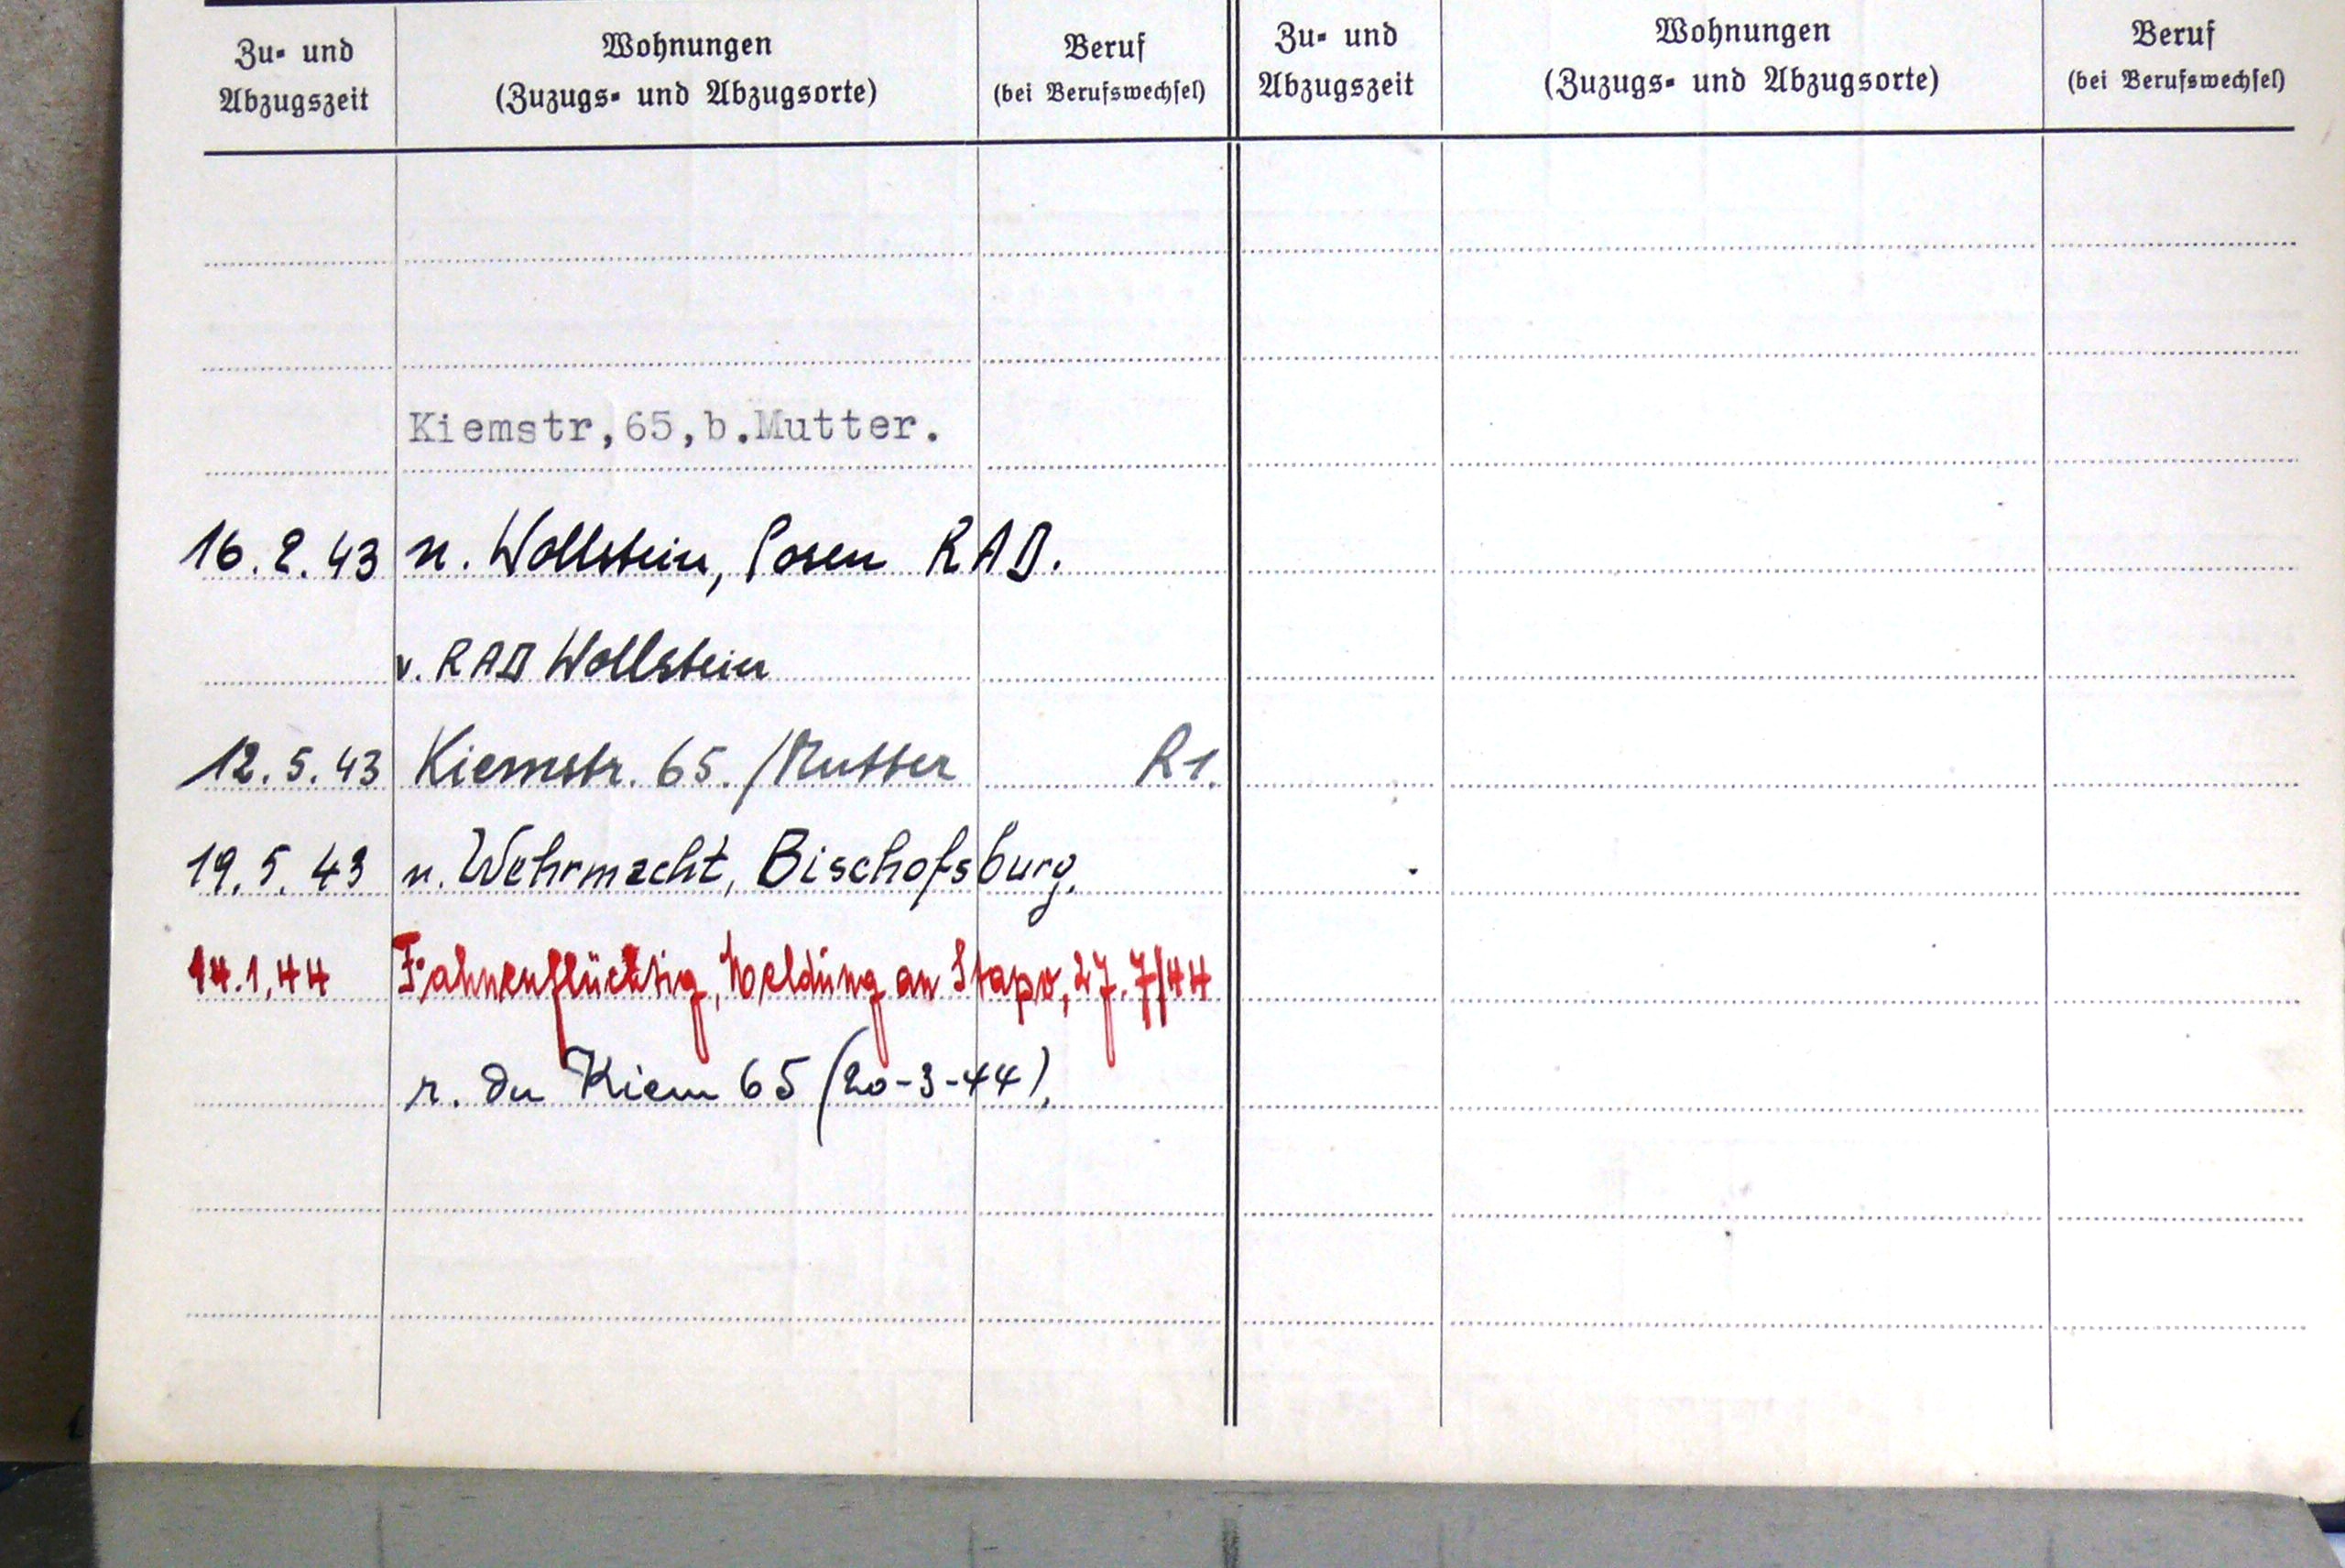 Zu- und Abzugszeit
Wohnungen
(Zuzugs- und Abzugsorte)
Beruf
(bei Berufswechsel)
Zu- und Abzugszeit
Wohnungen
(Zuzugs- und Abzugsorte)
Beruf
(bei Berufswechsel)
Kiemstr,65,b.Mutter.
16.2.43 n. Wollstein, Posen RAD.
v. RAD Wollstein
12.5.43 Kiemstr. 65. /Mutter R1.
19.5.43 n. Wehrmacht, Bischofsburg.
14.1.44 Fahnenflüchtig, Meldung an Stapo, 27.7/44
r. du Kiem 65 (20-3-44).